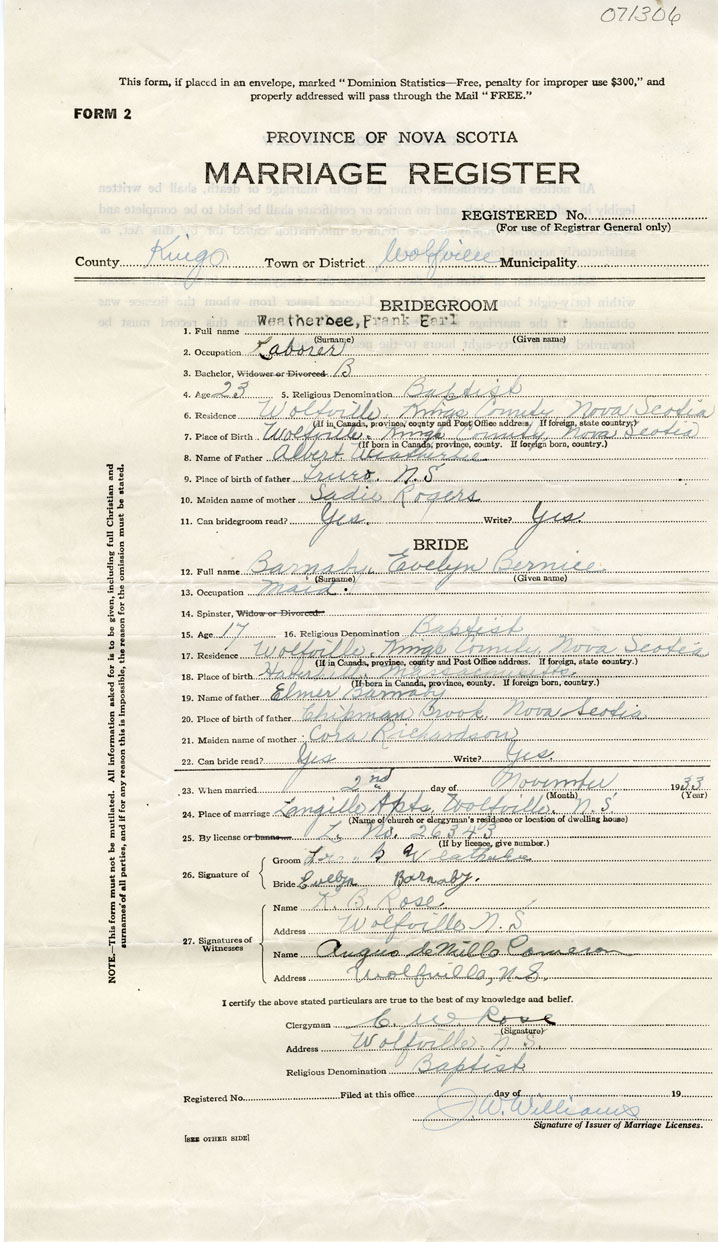 071306
This form, if placed in an envelope, marked "Dominion Statistics—Free, penalty for improper use $300," and
properly addressed will pass through the Mail "FREE."
FORM 2
PROVINCE OF NOVA SCOTIA
MARRIAGE REGISTER
REGISTERED No.
(For use of Registrar General only)
County Kings Town or District Wolfville Municipality
BRIDEGROOM
1. Full name Weatherbee, Frank Earl
(Surname) (Given name)
2. Occupation Laborer
3. Bachelor, Widower or Divorced B
4. Age 23 5. Religious Denomination Baptist
6. Residence Wolfville, Kings County, Nova Scotia
(If in Canada, province, county and Post Office address. If foreign, state country.)
7. Place of Birth Wolfville, Kings County, Nova Scotia
(If born in Canada, province, county. If foreign born, country.)
8. Name of Father Albert Weatherbee
9. Place of birth of father Truro, N.S
10. Maiden name of mother Sadie Rogers
11. Can bridegroom read? Yes. Write? Yes.
BRIDE
12. Full name Barnaby, Evelyn Bernice.
(Surname) (Given name)
13. Occupation Maid.
14. Spinster, Widow or Divorced.
15. Age 17 16. Religious Denomination Baptist
17. Residence Wolfville, Kings County, Nova Scotia
(If in Canada, province, county and Post Office address. If foreign, state country.)
18. Place of birth Massachusetts
(If born in Canada, province, county. If foreign born, country.)
19. Name of father Elmer Barnaby
20. Place of birth of father Chipman Brook, Nova Scotia
21. Maiden name of mother Cora Richardson
22. Can bride read? Yes Write? Yes.
23. When married 2nd day of November 1933
(Month) (Year)
24. Place of marriage Langille Apts, Wolfville, N.S.
(Name of church or clergyman's residence or location of dwelling house)
25. By license or banns L. No. 26343
(If by licence, give number.)
26. Signature of
Groom Frank Weatherbee
Bride Evelyn Barnaby.
27. Signatures of Witnesses
Name K. B. Rose.
Address Wolfville N.S
Name Angus deMille Cameron
Address Wolfville, N.S.
I certify the above stated particulars are true to the best of my knowledge and belief.
Clergyman C. W. Rose
(Signature)
Address Wolfville N.S.
Religious Denomination Baptist
Registered No. Filed at this office day of 19
J. W. Williams
Signature of Issuer of Marriage Licenses.
[SEE OTHER SIDE]
NOTE.—This form must not be mutilated. All information asked for is to be given, including full Christian and
surnames of all parties, and if for any reason this is impossible, the reason for the omission must be stated.